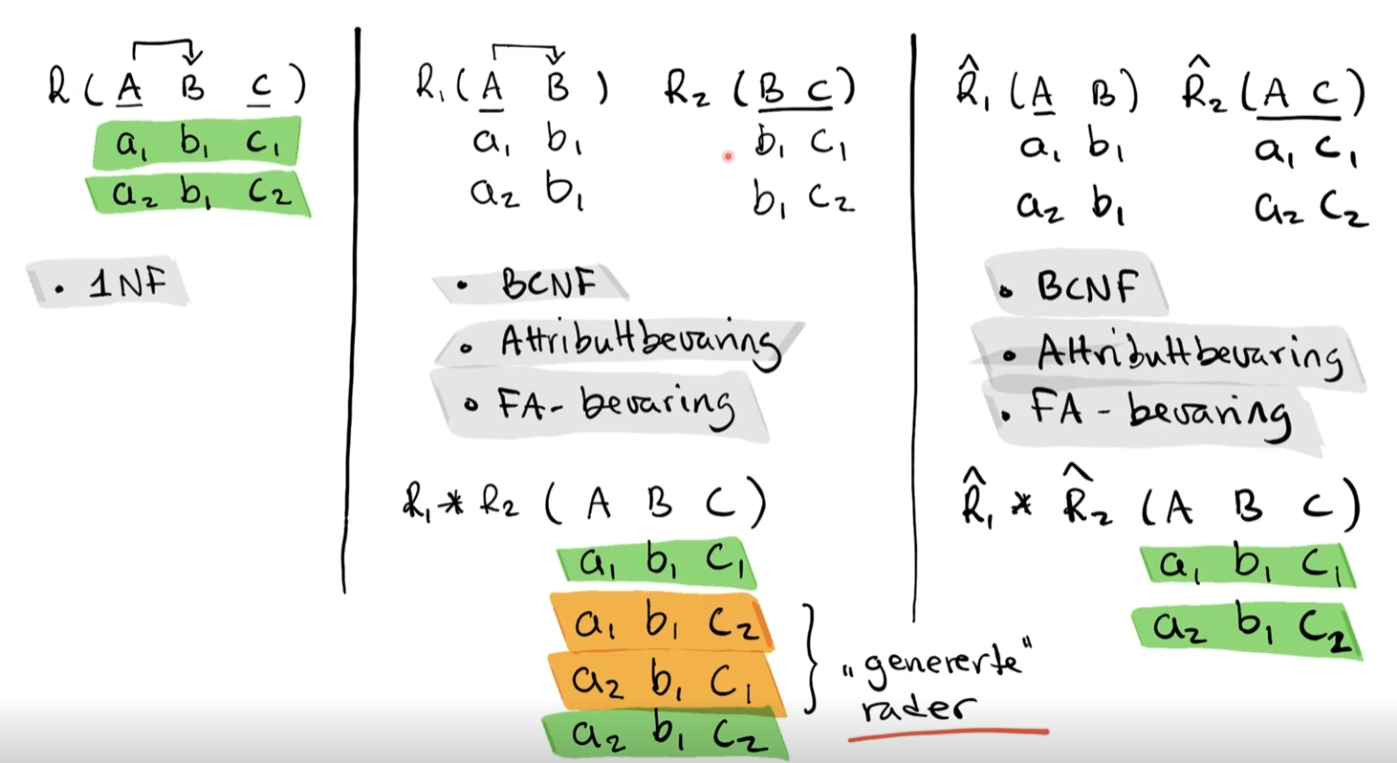 R ( A B C )
a₁ b₁ c₁
a₂ b₁ c₂
• 1NF
R₁ ( A B )
a₁ b₁
a₂ b₁
R₂ ( B C )
b₁ c₁
b₁ c₂
• BCNF
• Attributtbevaring
• FA - bevaring
R₁ * R₂ ( A B C )
a₁ b₁ c₁
a₁ b₁ c₂
a₂ b₁ c₁
a₂ b₁ c₂
„genererte"
rader
R̂₁ ( A B )
a₁ b₁
a₂ b₁
R̂₂ ( A C )
a₁ c₁
a₂ c₂
• BCNF
• Attributtbevaring
• FA - bevaring
R̂₁ * R̂₂ ( A B C )
a₁ b₁ c₁
a₂ b₁ c₂